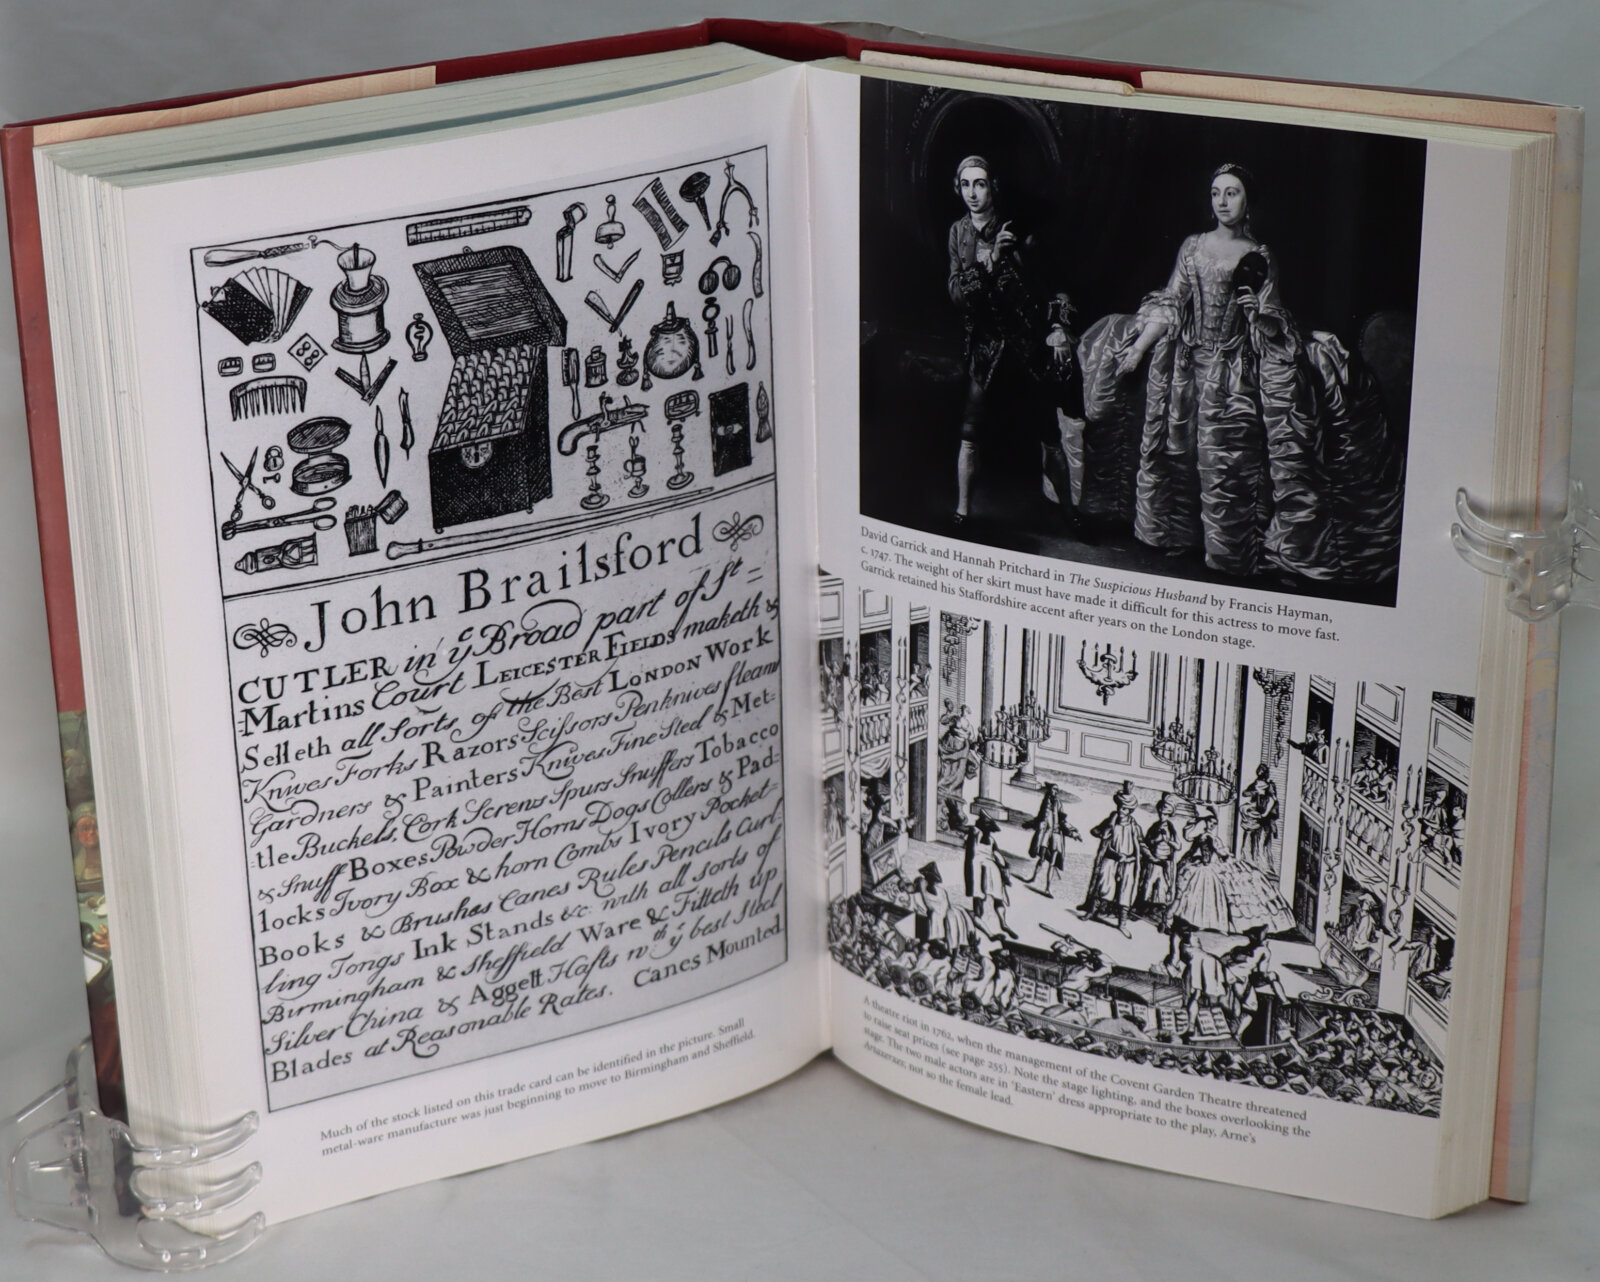 John Brailsford
CUTLER in yᵉ Broad part of Sᵗ =
-Martins Court LEICESTER FIELDS maketh &
Selleth all Sorts of the Best LONDON Work
Knives Forks Razors Scissors Penknives fleams
Gardners & Painters Knives Fine Steel & Met-
-tle Buckels, Cork Screws Spurs Snuffers Tobacco
& Snuff Boxes Powder Horns Dogs Collers & Pad-
locks Ivory Box & horn Combs Ivory Pocket-
Books & Brushes Canes Rules Pencils Curl-
ling Tongs Ink Stands &c. with all sorts of
Birmingham & Sheffield Ware & Fitteth up
Silver China & Aggett Hafts wᵗʰ yᵉ best Steel
Blades at Reasonable Rates. Canes Mounted.
Much of the stock listed on this trade card can be identified in the picture. Small
metal-ware manufacture was just beginning to move to Birmingham and Sheffield.
David Garrick and Hannah Pritchard in The Suspicious Husband by Francis Hayman,
c. 1747. The weight of her skirt must have made it difficult for this actress to move fast.
Garrick retained his Staffordshire accent after years on the London stage.
A theatre riot in 1762, when the management of the Covent Garden Theatre threatened
to raise seat prices (see page 255). Note the stage lighting, and the boxes overlooking the
stage. The two male actors are in 'Eastern' dress appropriate to the play, Arne's
Artaxerxes, not so the female lead.